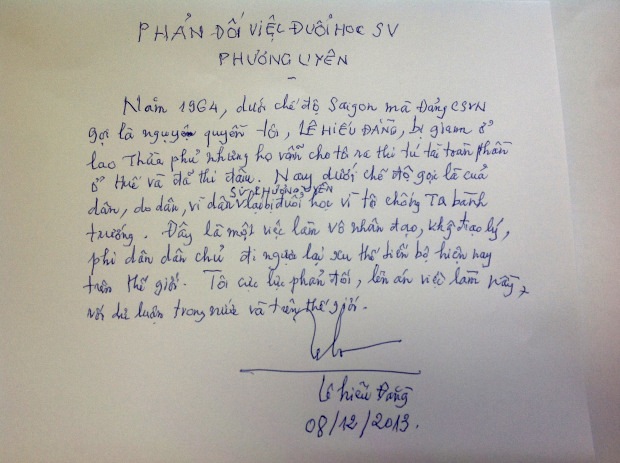 PHẢN ĐỐI VIỆC ĐUỔI HỌC SV
PHƯƠNG UYÊN
Năm 1964, dưới chế độ Saigon mà Đảng CSVN
gọi là ngụy quyền tôi, LÊ HIẾU ĐẰNG, bị giam ở
lao Thừa phủ nhưng họ vẫn cho tôi ra thi tú tài toàn phần
ở Huế và đã thi đậu. Nay dưới chế độ gọi là của
SV PHƯƠNG UYÊN
dân, do dân, vì dân lại bị đuổi học vì tội chống Tàu bành
trướng. Đây là một việc làm vô nhân đạo, không đạo lý,
phi dân dân chủ đi ngược lại xu thế tiến bộ hiện nay
trên thế giới. Tôi cực lực phản đối, lên án việc làm này,
với dư luận trong nước và trên thế giới.
Lê Hiếu Đằng
08/12/2013.